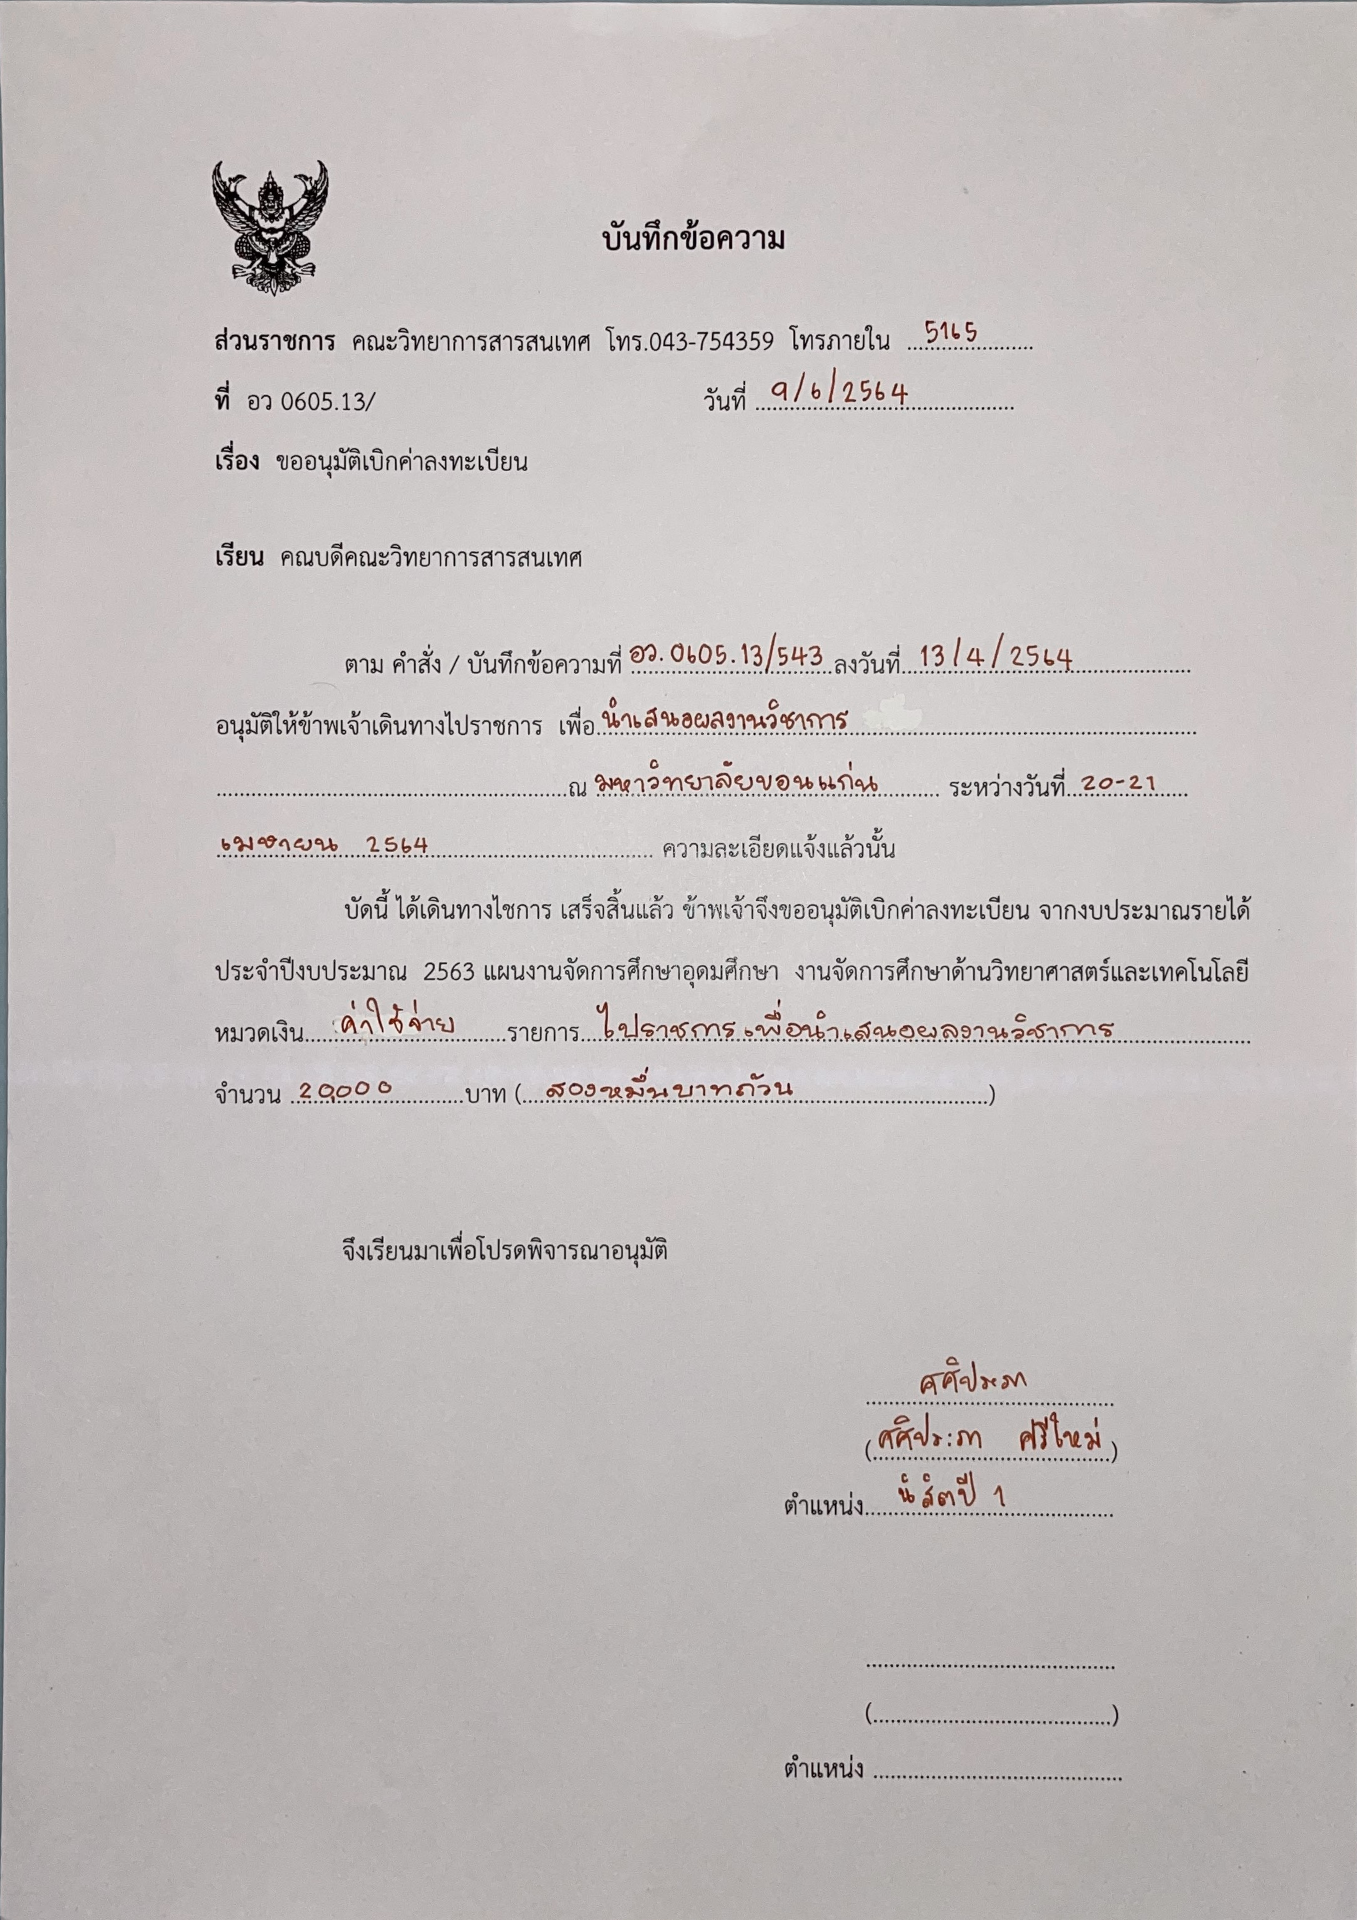 บันทึกข้อความ
ส่วนราชการ คณะวิทยาการสารสนเทศ โทร.043-754359 โทรภายใน 5165
ที่ อว 0605.13/ วันที่ 9/6/2564
เรื่อง ขออนุมัติเบิกค่าลงทะเบียน
เรียน คณบดีคณะวิทยาการสารสนเทศ
ตาม คำสั่ง / บันทึกข้อความที่ อว.0605.13/543 ลงวันที่ 13/4/2564
อนุมัติให้ข้าพเจ้าเดินทางไปราชการ เพื่อ นำเสนอผลงานวิชาการ
ณ มหาวิทยาลัยขอนแก่น ระหว่างวันที่ 20-21
เมษายน 2564 ความละเอียดแจ้งแล้วนั้น
บัดนี้ ได้เดินทางไชการ เสร็จสิ้นแล้ว ข้าพเจ้าจึงขออนุมัติเบิกค่าลงทะเบียน จากงบประมาณรายได้
ประจำปีงบประมาณ 2563 แผนงานจัดการศึกษาอุดมศึกษา งานจัดการศึกษาด้านวิทยาศาสตร์และเทคโนโลยี
หมวดเงิน ค่าใช้จ่าย รายการ ไปราชการเพื่อนำเสนอผลงานวิชาการ
จำนวน 20,000 บาท ( สองหมื่นบาทถ้วน )
จึงเรียนมาเพื่อโปรดพิจารณาอนุมัติ
ศศิประภา
(ศศิประภา ศรีใหม่)
ตำแหน่ง นิสิตปี 1
( )
ตำแหน่ง